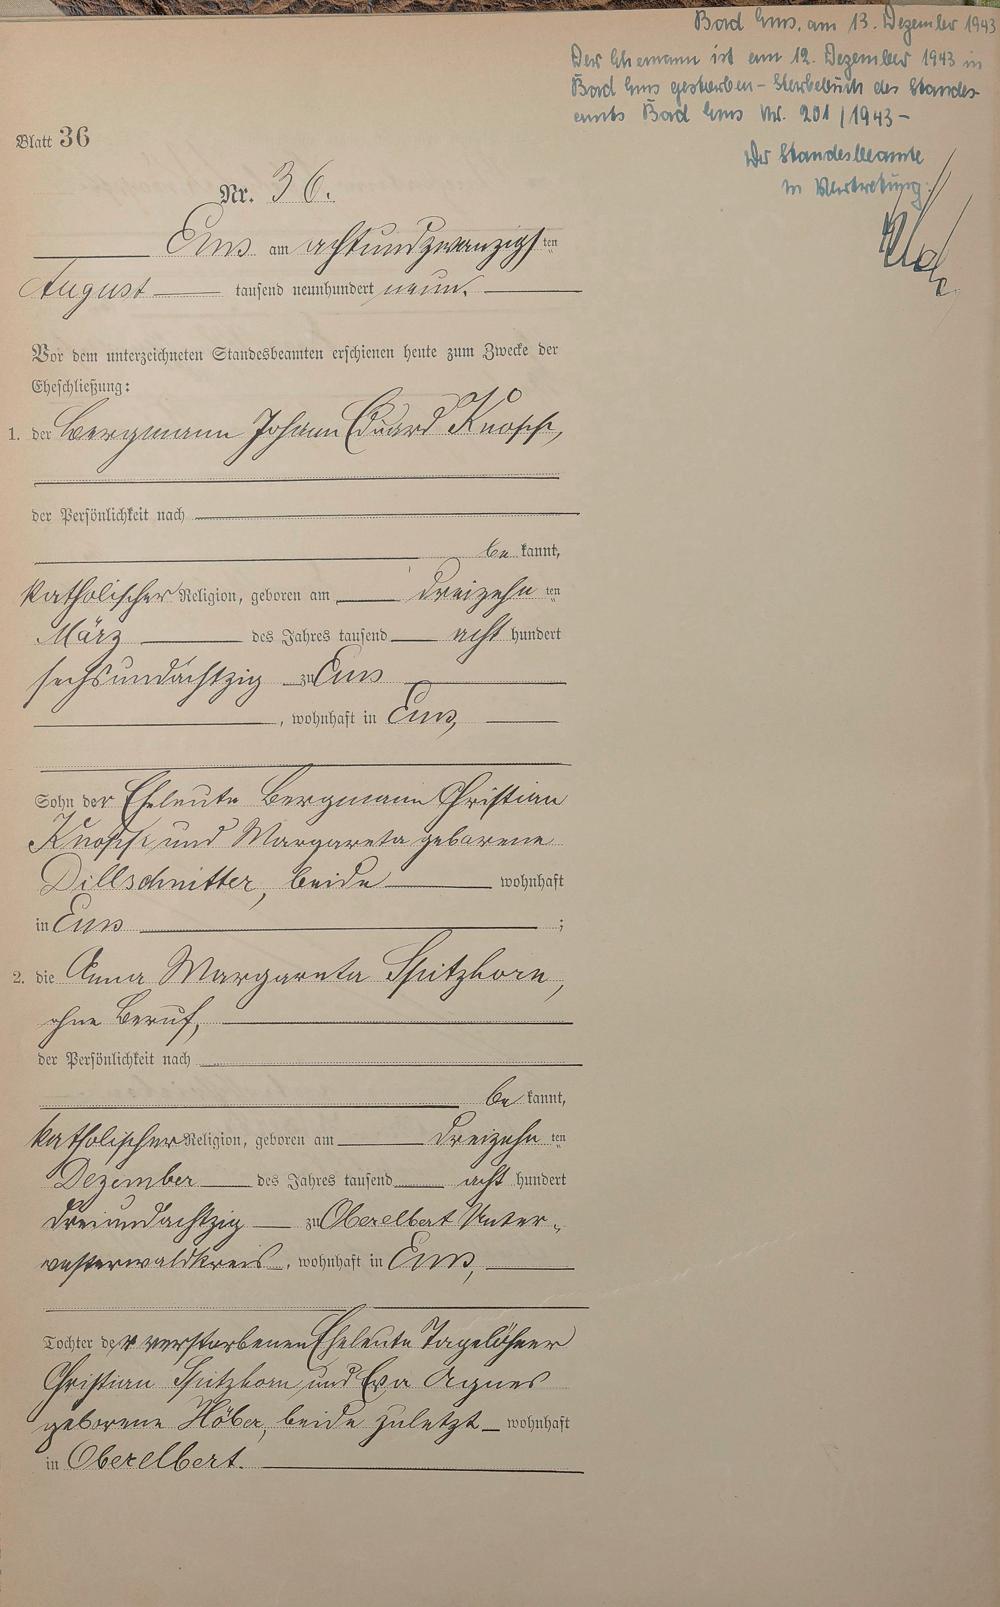 Bad Ems, am 13. Dezember 1943
Der Ehemann ist am 12. Dezember 1943 in
Bad Ems gestorben - Sterbebuch des Standes-
amts Bad Ems Nr. 201/1943 -
Der Standesbeamte
in Vertretung:
Blatt 36
Nr. 36.
Ems am achtundzwanzigsten
August tausend neunhundert neun.
Vor dem unterzeichneten Standesbeamten erschienen heute zum Zwecke der
Eheschließung:
1. der Bergmann Johann Eduard Knopp,
der Persönlichkeit nach
be kannt,
katholischer Religion, geboren am dreizehnten
März des Jahres tausend acht hundert
sechsundachtzig zu Ems
, wohnhaft in Ems,
Sohn der Eheleute Bergmann Christian
Knopp und Margareta geborene
Dillschnitter, beide wohnhaft
in Ems ;
2. die Anna Margareta Spitzhorn,
ohne Beruf,
der Persönlichkeit nach
be kannt,
katholischer Religion, geboren am dreizehnten
Dezember des Jahres tausend acht hundert
dreiundachtzig zu Oberelbert Unter-
westerwaldkreis, wohnhaft in Ems,
Tochter der verstorbenen Eheleute Tagelöhner
Christian Spitzhorn und Eva Agnes
geborene Höber, beide zuletzt wohnhaft
in Oberelbert.